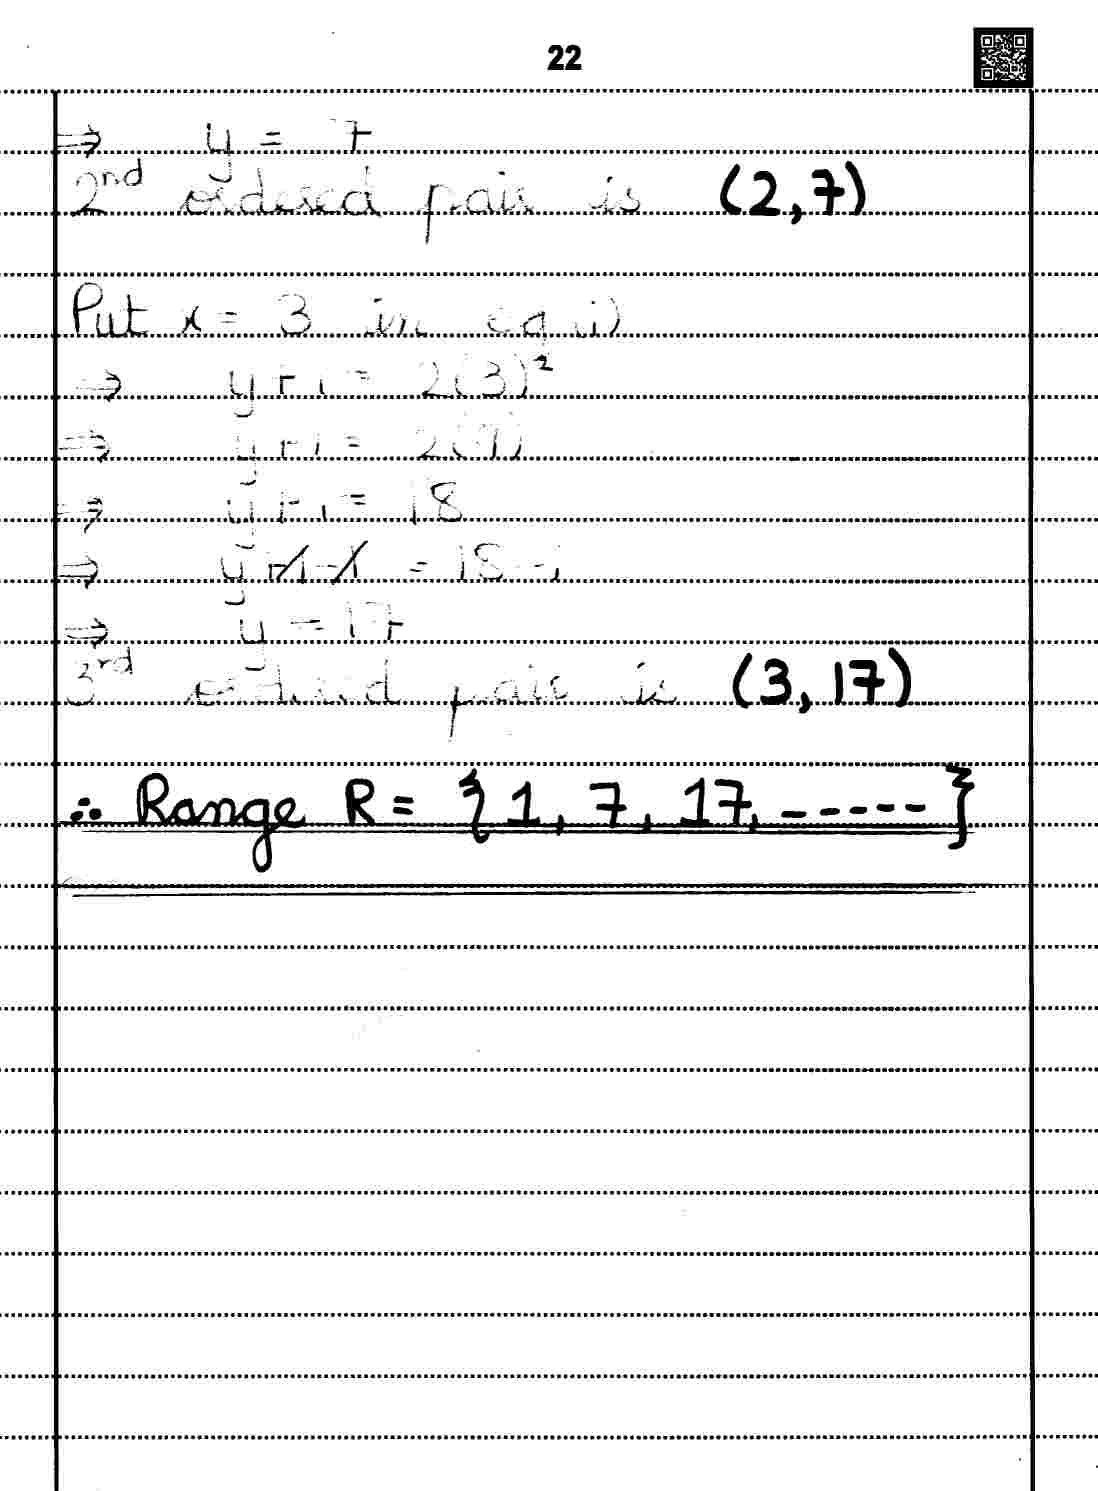 22
⇒ y = 7
2nd ordered pair is (2,7)
Put x = 3 in eq i)
⇒ y+1 = 2(3)²
⇒ y+1 = 2(9)
⇒ y+1 = 18
⇒ y+1-1 = 18-1
⇒ y = 17
3rd ordered pair is (3,17)
∴ Range R = {1, 7, 17, -----}